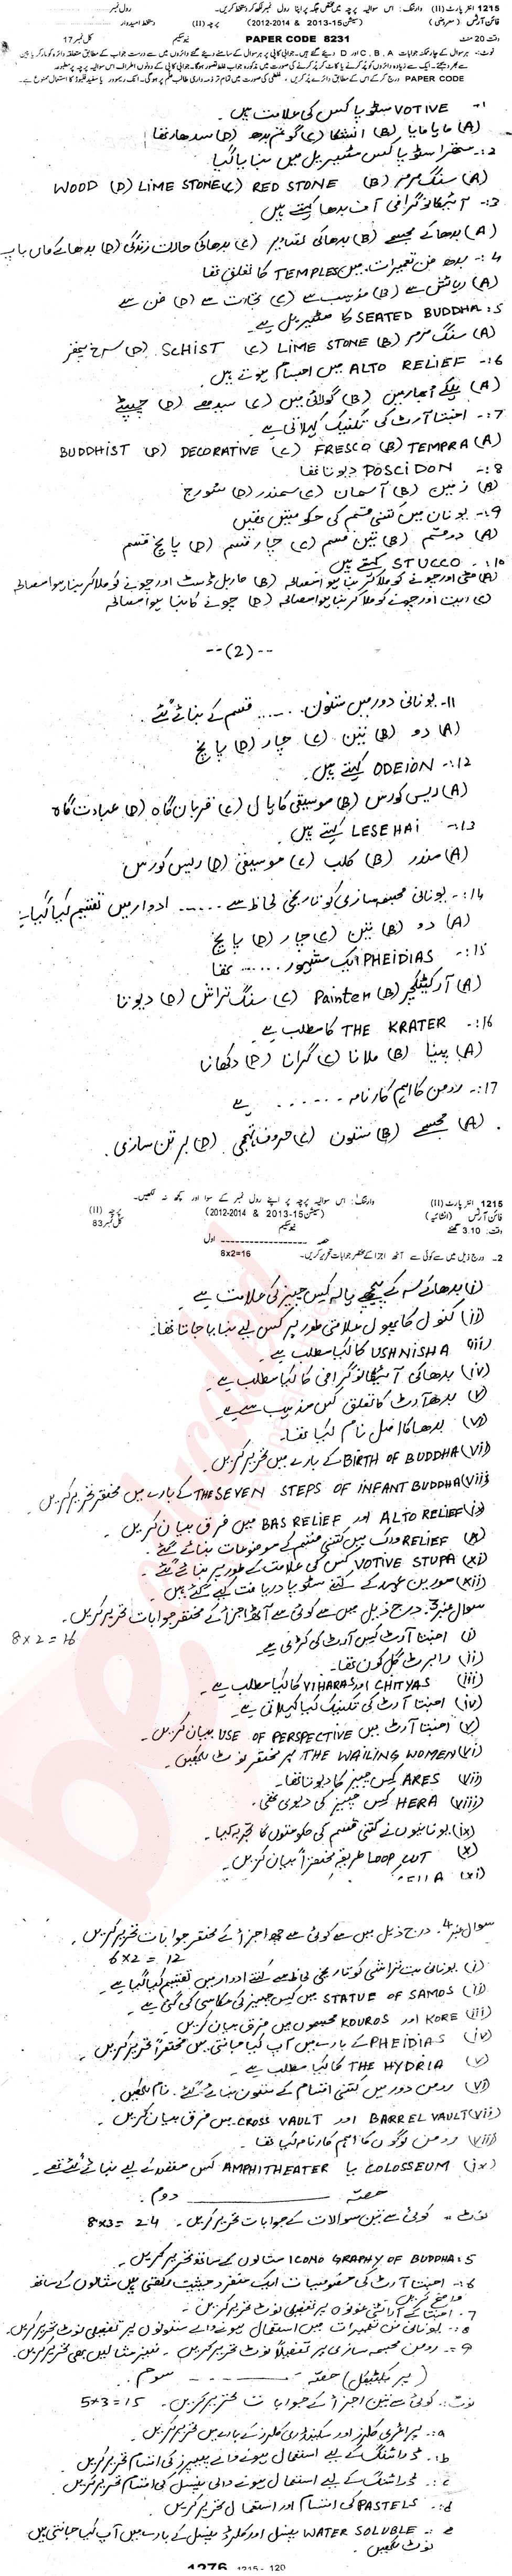 1215 انٹر پارٹ (II) وارننگ: اس سوالیہ پرچہ پر مختص جگہ پر اپنا رول نمبر لکھ کر دستخط کریں۔ رول نمبر
فائن آرٹس (معروضی) (سیشن 15-2013 & 2014-2012) پرچہ (II) دستخط امیدوار
وقت 20 منٹ PAPER CODE 8231 نیو سکیم کل نمبر 17
1:- VOTIVE سٹوپا کس کی علامت ہیں۔
(A) مایا مایا (B) انشکا (C) گوتم بدھ (D) سدھارتھا
2:- سٹوپا کس مٹیریل میں بنایا گیا
(A) سنگ مرمر (B) RED STONE (C) LIME STONE (D) WOOD
3:- آئیکانوگرافی آف بدھا کہتے ہیں
(A) بدھا کے مجسمے (B) بدھا کی تصاویر (C) بدھا کی حالات زندگی (D) بدھا کے ماں باپ
4:- بدھ فن تعمیرات میں TEMPLES کا تعلق تھا
(A) رہائش سے (B) مذہب سے (C) تجارت سے (D) فن سے
5:- SEATED BUDDHA کا مٹیریل ہے
(A) سنگ مرمر (B) LIME STONE (C) SCHIST (D) سرخ پتھر
6:- ALTO RELIEF میں اجسام ہوتے ہیں
(A) ہلکے ابھار میں (B) گولائی میں (C) سیدھے (D) چپٹے
7:- اجنتا آرٹ کی تکنیک کہلاتی ہے
(A) TEMPRA (B) FRESCO (C) DECORATIVE (D) BUDDHIST
8:- POSCIDON دیوتا تھا
(A) زمین (B) آسمان (C) سمندر (D) سورج
9:- یونان میں کتنی قسم کی حکومتیں تھیں
(A) دو قسم (B) تین قسم (C) چار قسم (D) پانچ قسم
10:- STUCCO کہتے ہیں
(A) مٹی اور چونے کو ملا کر بنایا ہوا مصالحہ (B) ماربل ڈسٹ اور چونے کو ملا کر بنایا ہوا مصالحہ
(C) ریت اور چونے کو ملا کر بنایا ہوا مصالحہ (D) چونے کا بنایا ہوا مصالحہ
--(2)--
11:- یونانی دور میں ستون ...... قسم کے بنائے گئے
(A) دو (B) تین (C) چار (D) پانچ
12:- ODEION کہتے ہیں
(A) ریس کورس (B) موسیقی کا ہال (C) قربان گاہ (D) عبادت گاہ
13:- LESEHAI کہتے ہیں
(A) مندر (B) کلب (C) موسیقی (D) ریس کورس
14:- یونانی مجسمہ سازی کو تاریخی لحاظ سے ...... ادوار میں تقسیم کیا گیا ہے
(A) دو (B) تین (C) چار (D) پانچ
15:- PHEIDIAS ایک مشہور ...... تھا
(A) آرکیٹکچر (B) Painter (C) سنگ تراش (D) دیوتا
16:- THE KRATER کا مطلب ہے
(A) پینا (B) ملانا (C) گرانا (D) دکھانا
17:- رومن کا اہم کارنامہ ...... ہے
(A) مجسمے (B) ستون (C) حروف تہجی (D) برتن سازی
1215 انٹر پارٹ (II) وارننگ: اس سوالیہ پرچہ پر اپنے رول نمبر کے سوا اور کچھ نہ لکھیں۔
فائن آرٹس (انشائیہ) (سیشن 15-2013 & 2014-2012) پرچہ (II)
وقت: 3.10 گھنٹے نیو سکیم کل نمبر 83
حصہ اول
2- درج ذیل میں سے کوئی سے آٹھ اجزا کے مختصر جوابات تحریر کریں۔ 8x2=16
(i) بدھا کے سر کے پیچھے ہالہ کس چیز کی علامت ہے
(ii) کنول کا پھول علامتی طور پر کس لیے بنایا جاتا تھا۔
(iii) USHNISHA کا کیا مطلب ہے
(iv) بدھا کی آئیکانوگرافی کا کیا مطلب ہے
(v) بدھا آرٹ کا تعلق کس مذہب سے ہے
(vi) بدھا کا اصل نام کیا تھا۔
(vii) BIRTH OF BUDDHA کے بارے میں تحریر کریں
(viii) THE SEVEN STEPS OF INFANT BUDDHA کے بارے میں مختصر تحریر کریں
(ix) ALTO RELIEF اور BAS RELIEF میں فرق بیان کریں۔
(x) RELIEF ورک میں کتنی قسم کے موضوعات بنائے گئے
(xi) VOTIVE STUPA کس کی علامت کے طور پر بنائے گئے۔
(xii) مورین عہد کے کتنے سٹوپا دریافت کیے گئے ہیں۔
سوال نمبر 3۔ درج ذیل میں سے کوئی سے آٹھ اجزا کے مختصر جوابات تحریر کریں۔
8x2=16
(i) اجنتا آرٹ کس آرٹ کی کڑی ہے
(ii) رابرٹ گل کون تھا۔
(iii) CHITYAS اور VIHARAS کا کیا مطلب ہے
(iv) اجنتا آرٹ کی تکنیک کیا کہلاتی ہے
(v) اجنتا آرٹ میں USE OF PERSPECTIVE بیان کریں۔
(vi) THE WAILING WOMEN پر مختصر نوٹ لکھیں۔
(vii) ARES کس چیز کا دیوتا تھا۔
(viii) HERA کس چیز کی دیوی تھی۔
(ix) یونانیوں نے کتنی قسم کی حکومتوں کا تجربہ کیا۔
(x) LOOP CUT طریقہ مختصراً بیان کریں۔
(xi)
سوال نمبر 4۔ درج ذیل میں سے کوئی سے چھ اجزا کے مختصر جوابات تحریر کریں۔
6x2=12
(i) یونانی بت تراشی کو تاریخی لحاظ سے کتنے ادوار میں تقسیم کیا گیا ہے
(ii) STATUE OF SAMOS میں کس چیز کی عکاسی کی گئی ہے
(iii) KORE اور KOUROS مجسموں میں فرق بیان کریں
(iv) PHEIDIAS کے بارے میں آپ کیا جانتے ہیں مختصراً تحریر کریں۔
(v) THE HYDRIA کا کیا مطلب ہے
(vi) رومن دور میں کتنی اقسام کے ستون بنائے گئے۔ نام لکھیں
(vii) BARREL VAULT اور CROSS VAULT میں فرق بیان کریں۔
(viii) رومن لوگوں کا اہم کارنامہ کیا تھا۔
(ix) COLOSSEUM یا AMPHITHEATER کس مقصد کے لیے بنائے گئے تھے۔
حصہ دوم
نوٹ:- کوئی سے تین سوالات کے جوابات تحریر کریں۔ 8x3=24
5:- ICONO GRAPHY OF BUDDHA مثالوں کے ساتھ تحریر کریں۔
6:- اجنتا آرٹ کی خصوصیات ایک منفرد حیثیت رکھتی ہیں مثالوں کے ساتھ
واضح کریں
7:- اجنتا کے آرائشی نمونوں پر تفصیلی نوٹ تحریر کریں۔
8:- یونانی فن تعمیرات میں استعمال ہونے والے ستونوں پر تفصیلی نوٹ تحریر کریں۔
9:- رومن مجسمہ سازی پر تفصیلاً نوٹ تحریر کریں۔ نیز مثالیں بھی تحریر کریں۔
(پریکٹیکل) حصہ سوم
نوٹ:- کوئی سے تین اجزا کے جوابات تحریر کریں۔ 5x3=15
a:- پرائمری کلرز اور سکینڈری کلرز کے بارے میں تحریر کریں۔
b:- ڈرائنگ کے لیے استعمال ہونے والے پیپرز کی اقسام تحریر کریں
c:- ڈرائنگ کے لیے استعمال ہونے والی پنسل کی اقسام تحریر کریں
d:- PASTELS کی اقسام اور استعمال تحریر کریں
e:- WATER SOLUBLE پنسل اور کلرڈ پنسل کے بارے میں آپ کیا جانتے ہیں
نوٹ لکھیں۔
1276 1215 - 120